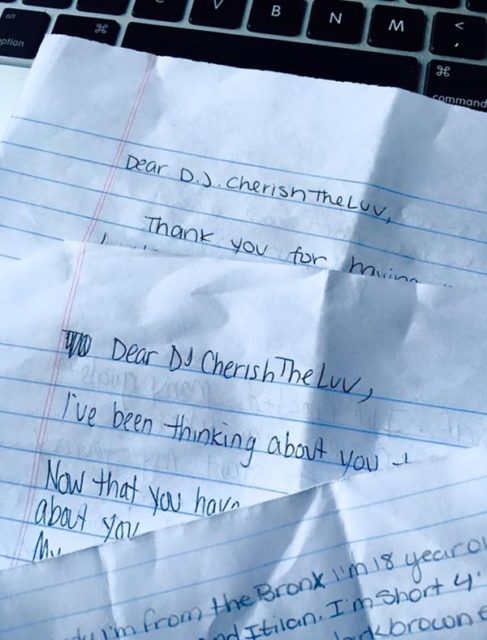 alt
option
⌘
V
B
N
M
<
,
⌘
command
Dear D.J. CherishTheLuv,
Thank you for having
Dear DJ CherishTheLuv,
I've been thinking about you
Now that you have
about you
My
I'm from the Bronx I'm 18 year
and Itilan. I'm short 4'
brown